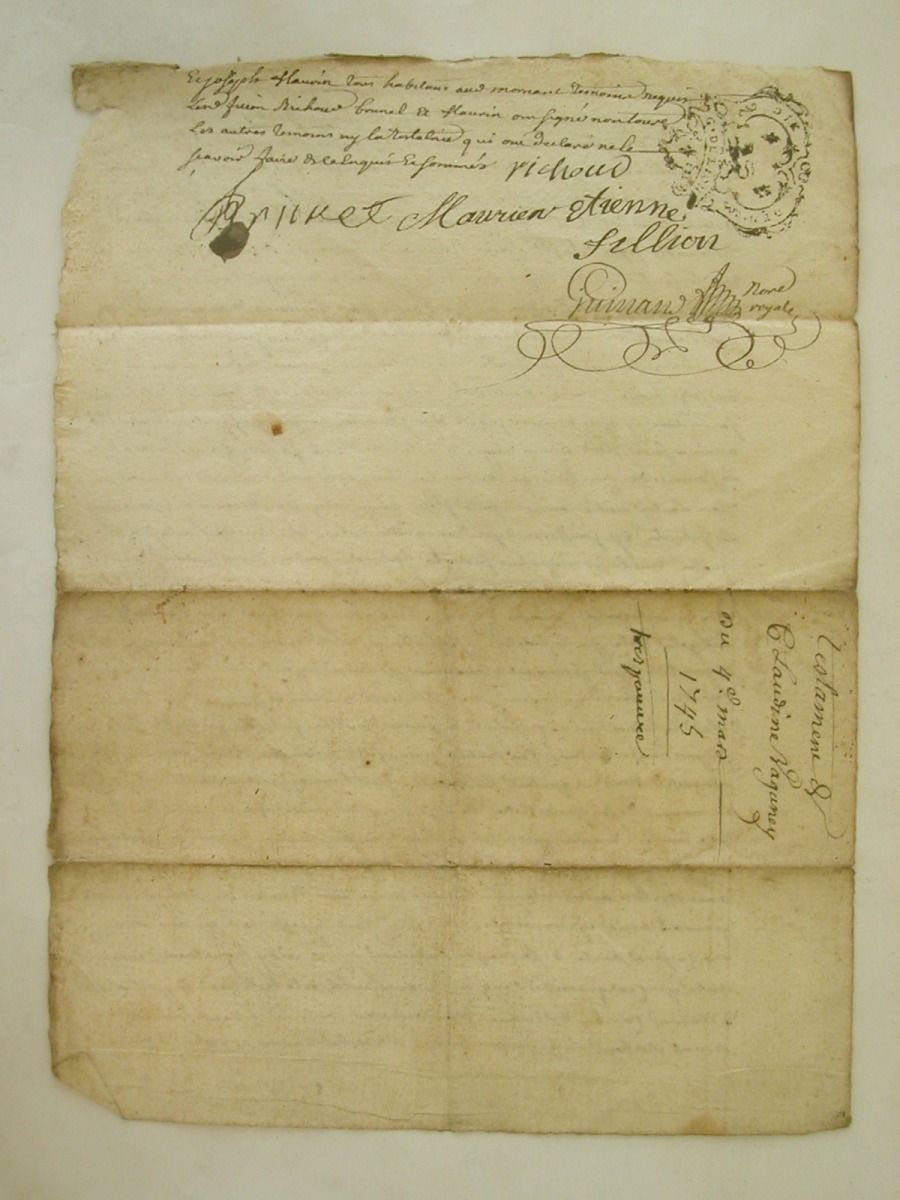 Et joseph flaurin tous habitans aud mornant temoins requis
Brichoud brunel et flaurin ont signé non
Les autres temoins ny la testatrice qui ont declaré ne le
scavoir faire de ce enquis Et sommés Richoud
Brunel Maurien etienne
fillion
Guinand Nore
royal
Testament de
Claudine Raguney
Du 4e. mars
1745